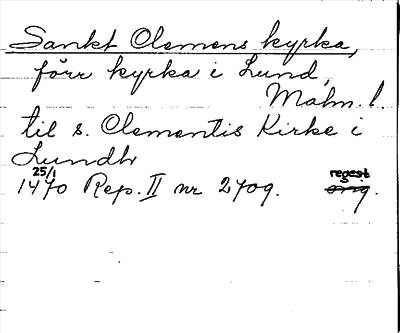 Sankt Clemens kyrka,
förr kyrka i Lund,
Malm. l.
til s. Clementis Kirke i
Lundh
25/1 regest
1470 Rep. II nr 2709. orig.